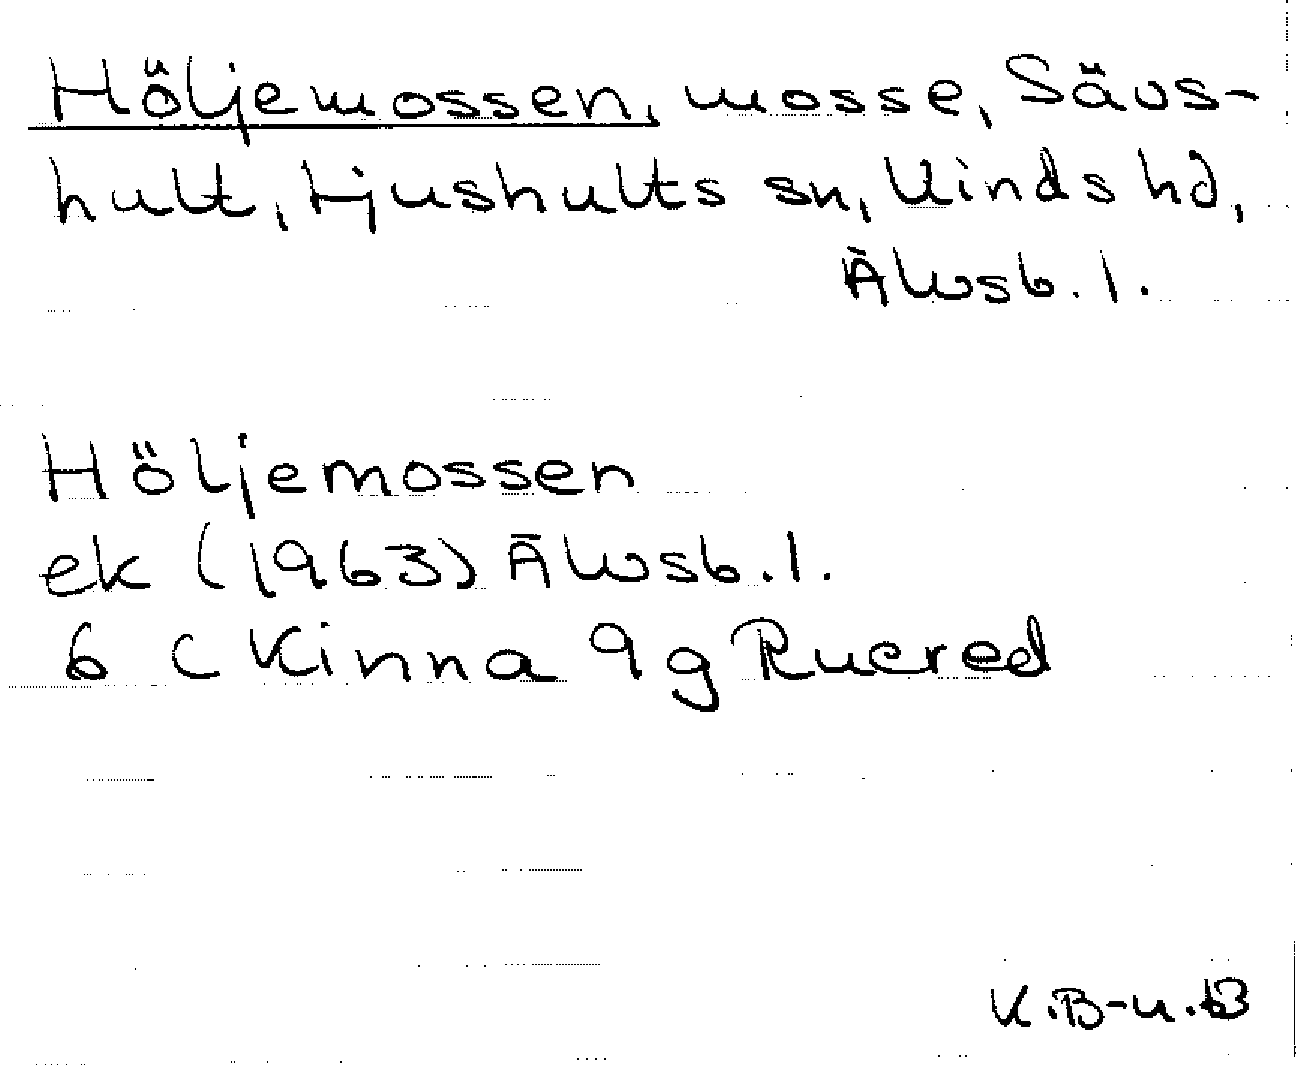 Höljemossen, mosse, Sävs-
hult, Ljushults sn, Kinds hd,
Älvsb. l.
Höljemossen
ek (1963) Älvsb. l.
6 C Kinna 9 g Ryered
K.B-n. 63